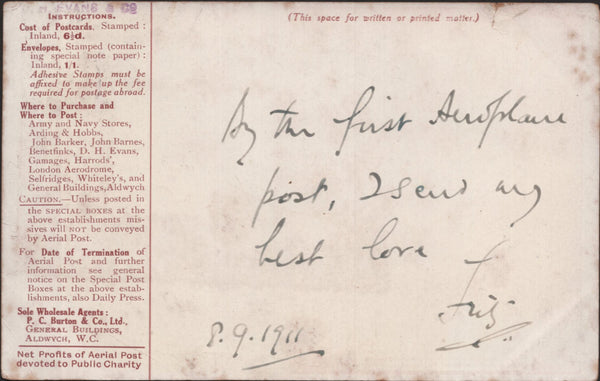 EVANS & CO
INSTRUCTIONS.
Cost of Postcards, Stamped :
Inland, 6½d.
Envelopes, Stamped (contain-
ing special note paper) :
Inland, 1/1.
Adhesive Stamps must be
affixed to make up the fee
required for postage abroad.
Where to Purchase and
Where to Post :
Army and Navy Stores,
Arding & Hobbs,
John Barker, John Barnes,
Benetfinks, D. H. Evans,
Gamages, Harrods',
London Aerodrome,
Selfridges, Whiteley's, and
General Buildings, Aldwych
CAUTION.—Unless posted in
the SPECIAL BOXES at the
above establishments mis-
sives will NOT be conveyed
by Aerial Post.
For Date of Termination of
Aerial Post and further
information see general
notice on the Special Post
Boxes at the above estab-
lishments, also Daily Press.
Sole Wholesale Agents :
P. C. Burton & Co., Ltd.,
GENERAL BUILDINGS,
ALDWYCH, W.C.
Net Profits of Aerial Post
devoted to Public Charity
(This space for written or printed matter.)
By the first Aeroplane
post, I send my
best love
Fritz
8.9.1911